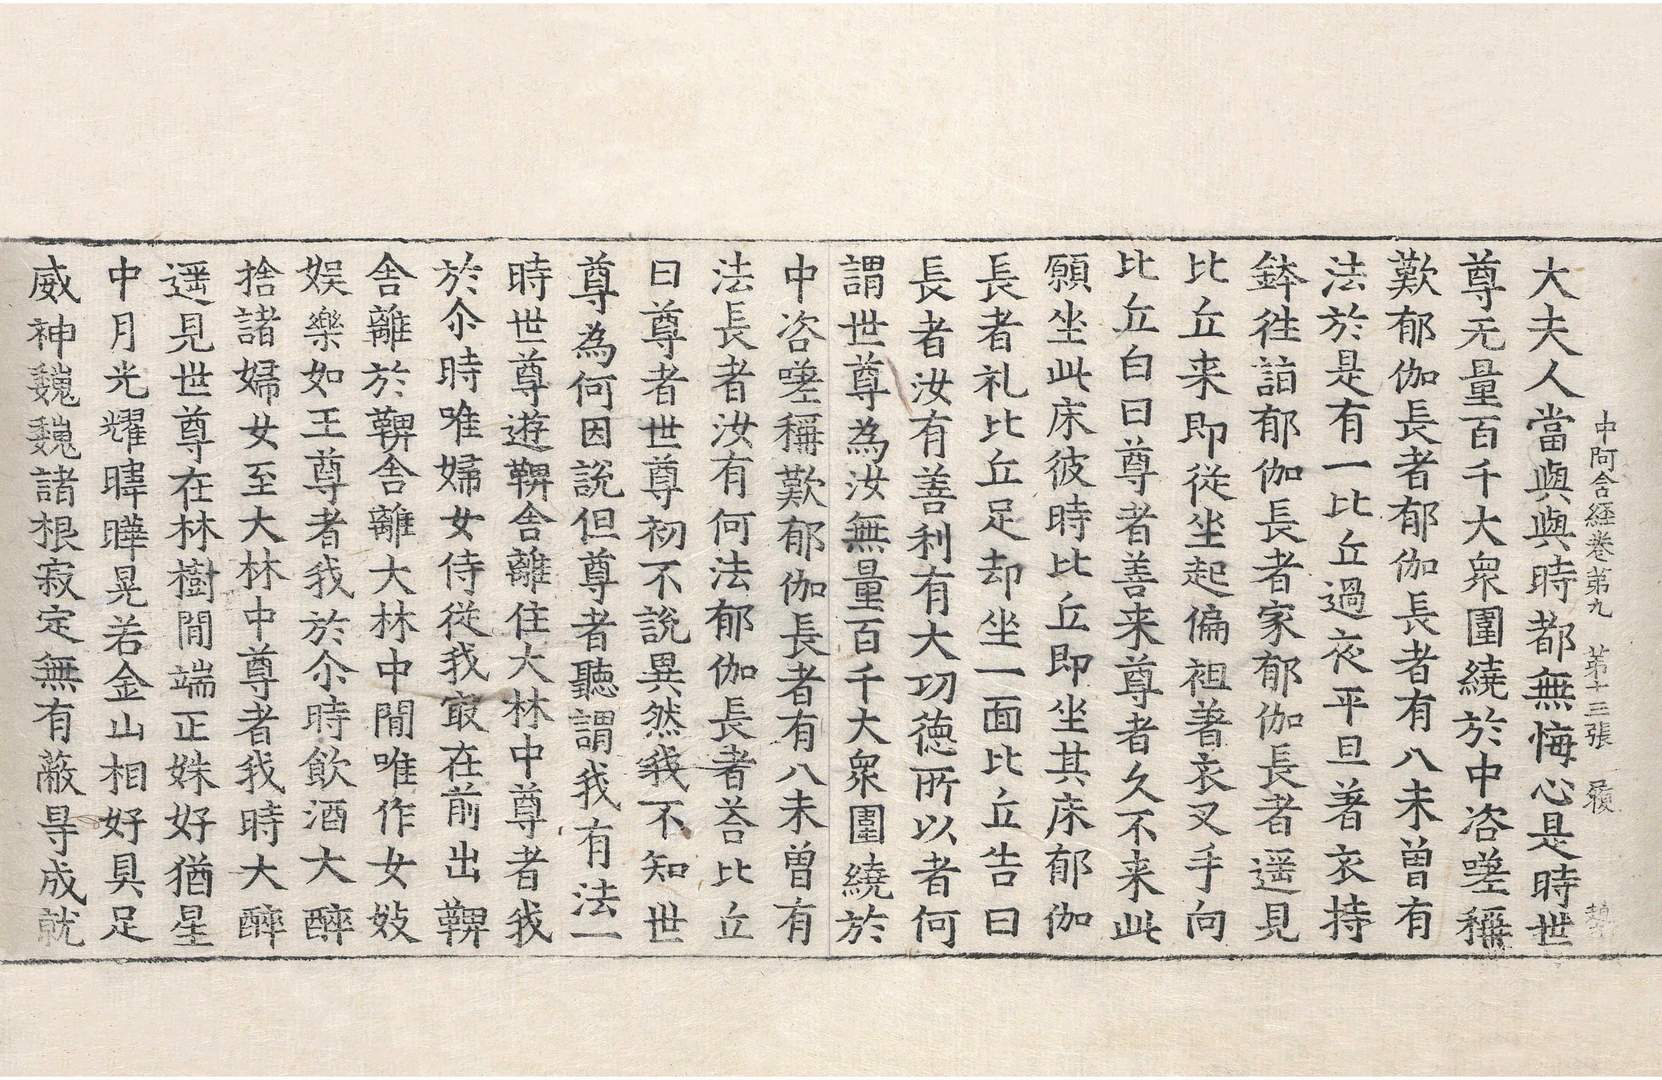 中阿含経卷第九　第十三張　履
大夫人當與與時都無悔心是時世
尊无量百千大衆圍繞於中咨嗟稱
歎郁伽長者郁伽長者有八未曾有
法於是有一比丘過夜平旦著衣持
鉢徃詣郁伽長者家郁伽長者遥見
比丘来即從坐起偏袒著衣叉手向
比丘白曰尊者善来尊者久不来此
願坐此床彼時比丘即坐其床郁伽
長者礼比丘足却坐一面比丘告曰
長者汝有善利有大功徳所以者何
謂世尊為汝無量百千大衆圍繞於
中咨嗟稱歎郁伽長者有八未曾有
法長者汝有何法郁伽長者荅比丘
曰尊者世尊初不説異然我不知世
尊為何因説但尊者聽謂我有法一
時世尊遊鞞舍離住大林中尊者我
於尒時唯婦女侍從我㝡在前出鞞
舍離於鞞舍離大林中間唯作女妓
娛樂如王尊者我於尒時飲酒大醉
捨諸婦女至大林中尊者我時大醉
遥見世尊在林樹間端正姝好猶星
中月光耀暐曄晃若金山相好具足
威神巍巍諸根寂定無有蔽㝵成就